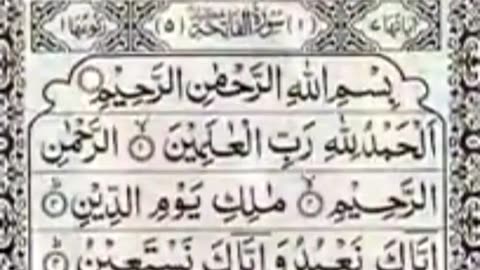 اٰیاتھا ۷ (۱) سُوْرَةُ الْفَاتِحَةِ (۵) رکوعھا ۱
بِسْمِ اللهِ الرَّحْمٰنِ الرَّحِیْمِ
اَلْحَمْدُ لِلّٰهِ رَبِّ الْعٰلَمِیْنَ ۙ۱ الرَّحْمٰنِ
الرَّحِیْمِ ۙ۲ مٰلِكِ یَوْمِ الدِّیْنِ ؕ۳
اِیَّاكَ نَعْبُدُ وَاِیَّاكَ نَسْتَعِیْنُ ؕ۴